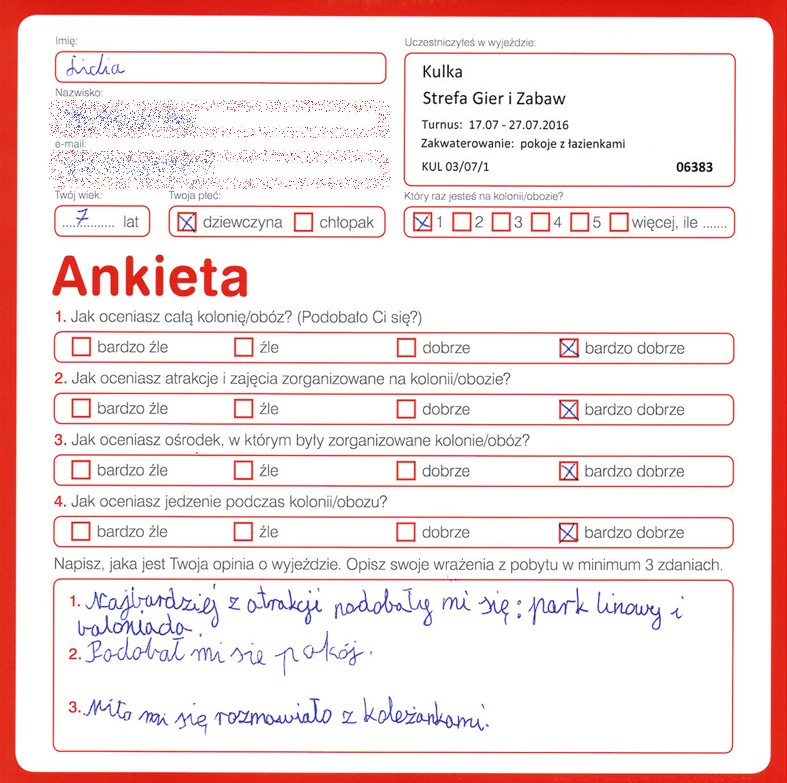 Imię:
Lidia
Nazwisko:
e-mail:
Twój wiek:
7 lat
Twoja płeć:
dziewczyna chłopak
Uczestniczyłeś w wyjeździe:
Kulka
Strefa Gier i Zabaw
Turnus: 17.07 - 27.07.2016
Zakwaterowanie: pokoje z łazienkami
KUL 03/07/1 06383
Który raz jesteś na kolonii/obozie?
1 2 3 4 5 więcej, ile .......
Ankieta
1. Jak oceniasz całą kolonię/obóz? (Podobało Ci się?)
bardzo źle źle dobrze bardzo dobrze
2. Jak oceniasz atrakcje i zajęcia zorganizowane na kolonii/obozie?
bardzo źle źle dobrze bardzo dobrze
3. Jak oceniasz ośrodek, w którym były zorganizowane kolonie/obóz?
bardzo źle źle dobrze bardzo dobrze
4. Jak oceniasz jedzenie podczas kolonii/obozu?
bardzo źle źle dobrze bardzo dobrze
Napisz, jaka jest Twoja opinia o wyjeździe. Opisz swoje wrażenia z pobytu w minimum 3 zdaniach.
1. Najbardziej z atrakcji podobały mi się: park linowy i
baloniada.
2. Podobał mi się pokój.
3. Miło mi się rozmawiało z koleżankami.